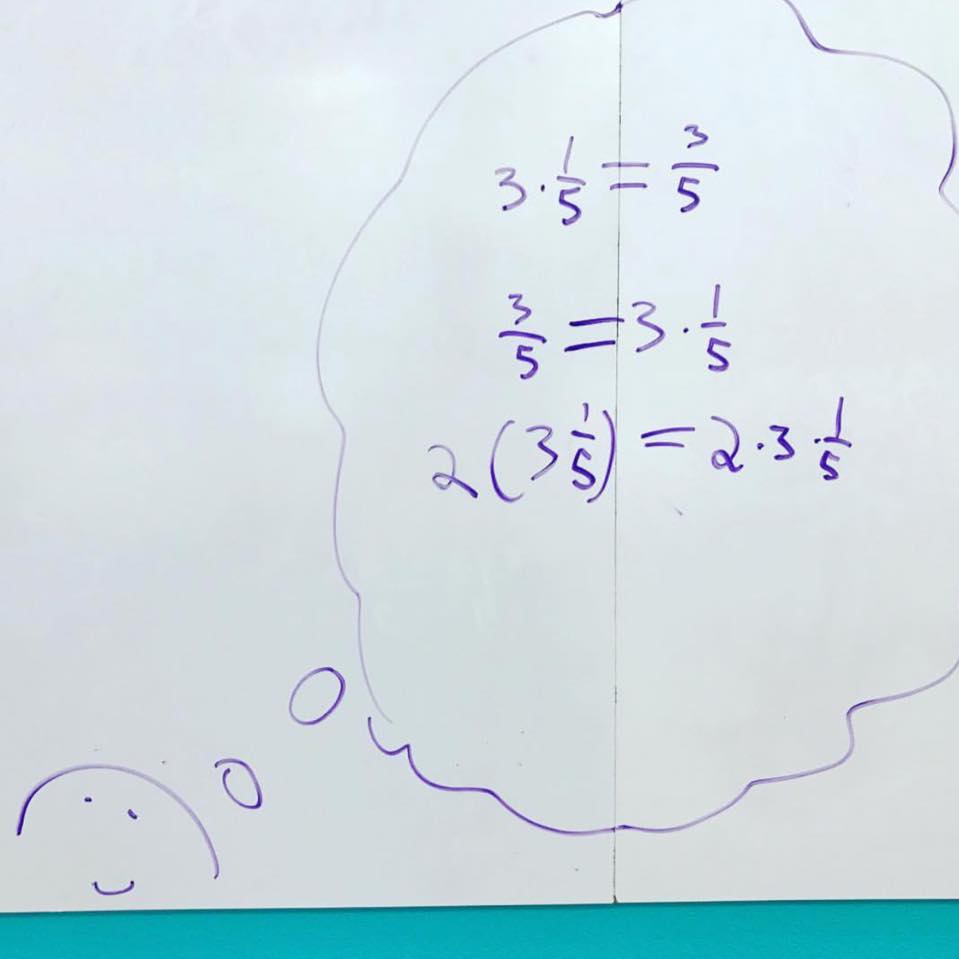 3 · 1/5 = 3/5
3/5 = 3 · 1/5
2(3 1/5) = 2 · 3 · 1/5